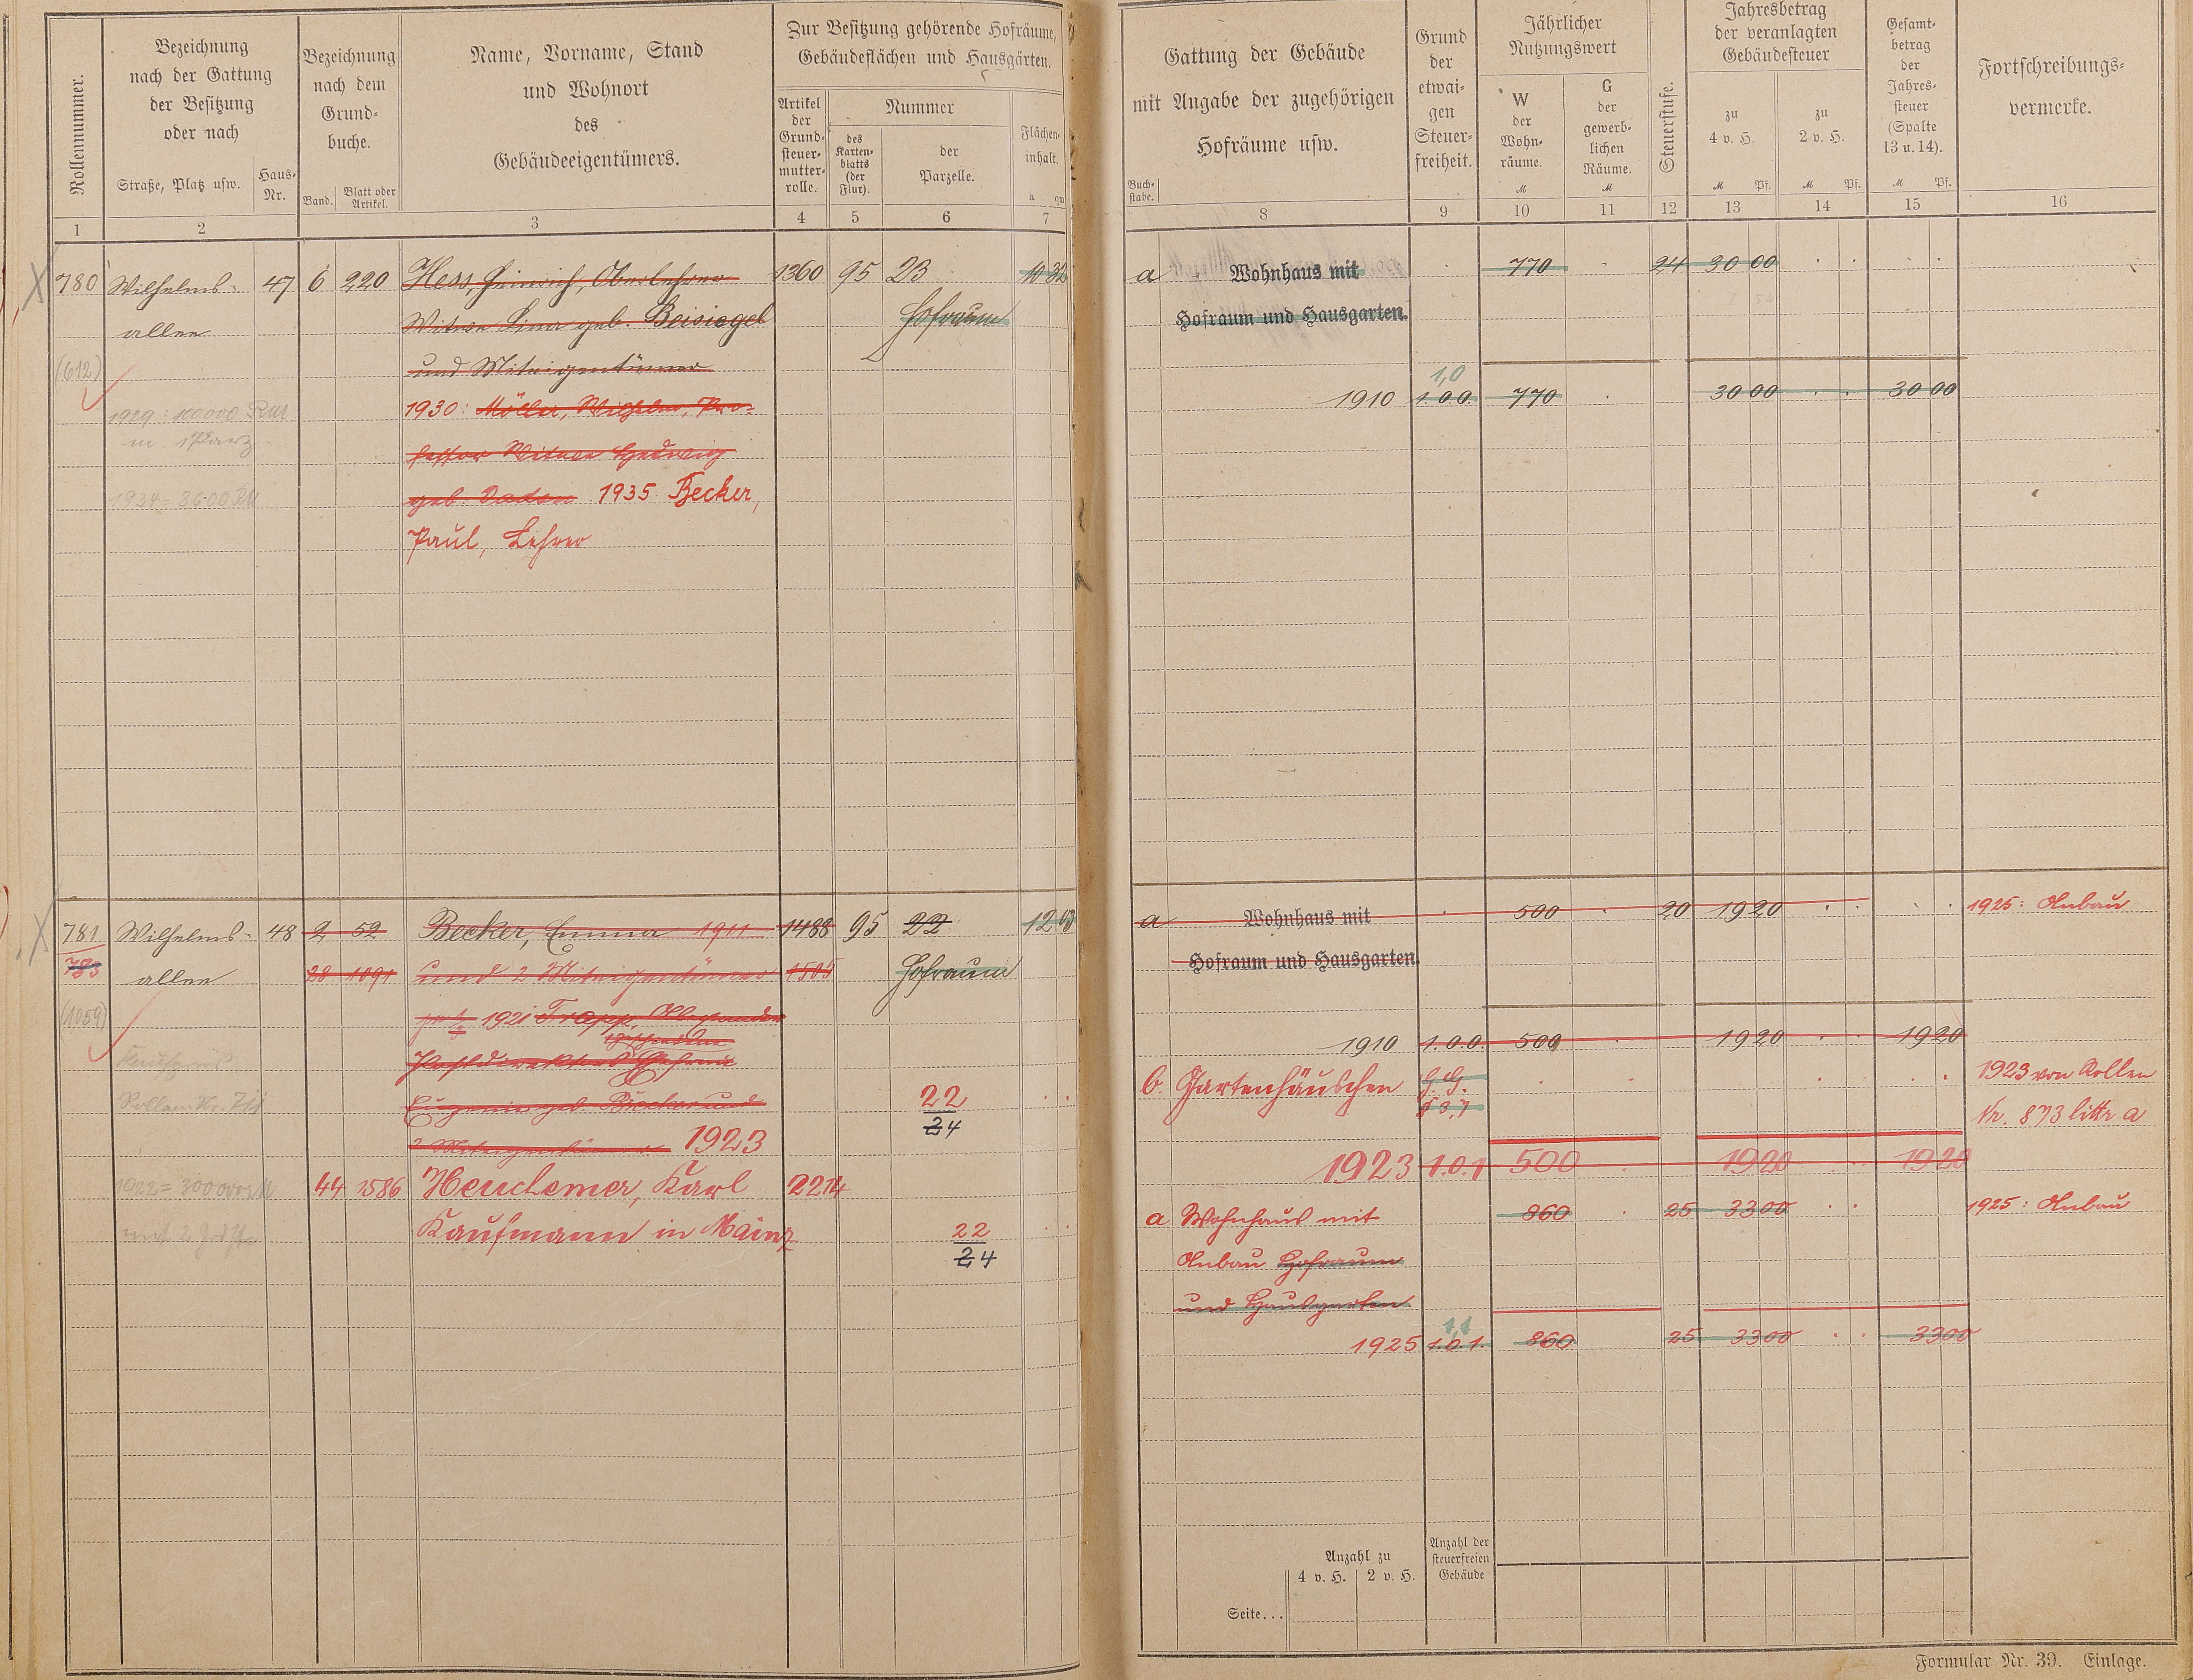 Rollennummer.
Bezeichnung
nach der Gattung
der Besitzung
oder nach
Straße, Platz usw.
Haus-
Nr.
Bezeichnung
nach dem
Grund-
buche.
Band.
Blatt oder
Artikel.
Name, Vorname, Stand
und Wohnort
des
Gebäudeeigentümers.
Zur Besitzung gehörende Hofräume,
Gebäudeflächen und Hausgärten.
Artikel
der
Grund-
steuer-
mutter-
rolle.
Nummer
des
Karten-
blatts
(der
Flur).
der
Parzelle.
Flächen-
inhalt.
a qm
1 2 3 4 5 6 7
780 Wilhelms- 47 6 220 Hess, Heinrich, Oberlehrer 1360 95 23 10 32
allee Witwe Lina geb. Beisiegel Hofraum
(612) und Miteigentümer
1929: 100000 RM 1930: Möller, Wilhelm, Pro-
m. 1 Parz. fessor Witwe Hedwig
1934 = 8600 RM geb. Daden 1935 Becker,
Paul, Lehrer
781 Wilhelms- 48 2 52 Becker, Emma 1911 1488 95 22 12 03
783 allee 28 1091 und 2 Miteigentümer 1505 Hofraum
(1059) 1921 Trapp, Alexander
Postdirektors Ehefrau
Eugenie geb. Becker und 22
2 Miteigentümer 1923 24
44 1586 Heuchemer, Karl 2214
Kaufmann in Mainz 22
24
Gattung der Gebäude
mit Angabe der zugehörigen
Hofräume usw.
Buch-
stabe.
Grund
der
etwai-
gen
Steuer-
freiheit.
Jährlicher
Nutzungswert
W
der
Wohn-
räume.
M
G
der
gewerb-
lichen
Räume.
M
Steuerstufe.
Jahresbetrag
der veranlagten
Gebäudesteuer
zu
4 v. H.
M Pf.
zu
2 v. H.
M Pf.
Gesamt-
betrag
der
Jahres-
steuer
(Spalte
13 u. 14).
M Pf.
Fortschreibungs-
vermerke.
8 9 10 11 12 13 14 15 16
a Wohnhaus mit 770 24 30 00
Hofraum und Hausgarten.
1,0
1910 1.0.0. 770 30 00 30 00
a Wohnhaus mit 500 20 19 20 1925: Anbau
Hofraum und Hausgarten.
1910 1.0.0. 500 19 20 19 20
b. Gartenhäuschen G. G. 1923 von Rollen
§ 3,7 Nr. 873 littr a
1923 1.0.1 500 19 20 19 20
a Wohnhaus mit 860 25 33 00 1925: Anbau
Anbau Hofraum
und Hausgarten
1,1
1925 1.0.1. 860 25 33 00 33 00
Anzahl zu
4 v. H. 2 v. H.
Anzahl der
steuerfreien
Gebäude
Seite...
Formular Nr. 39. Einlage.